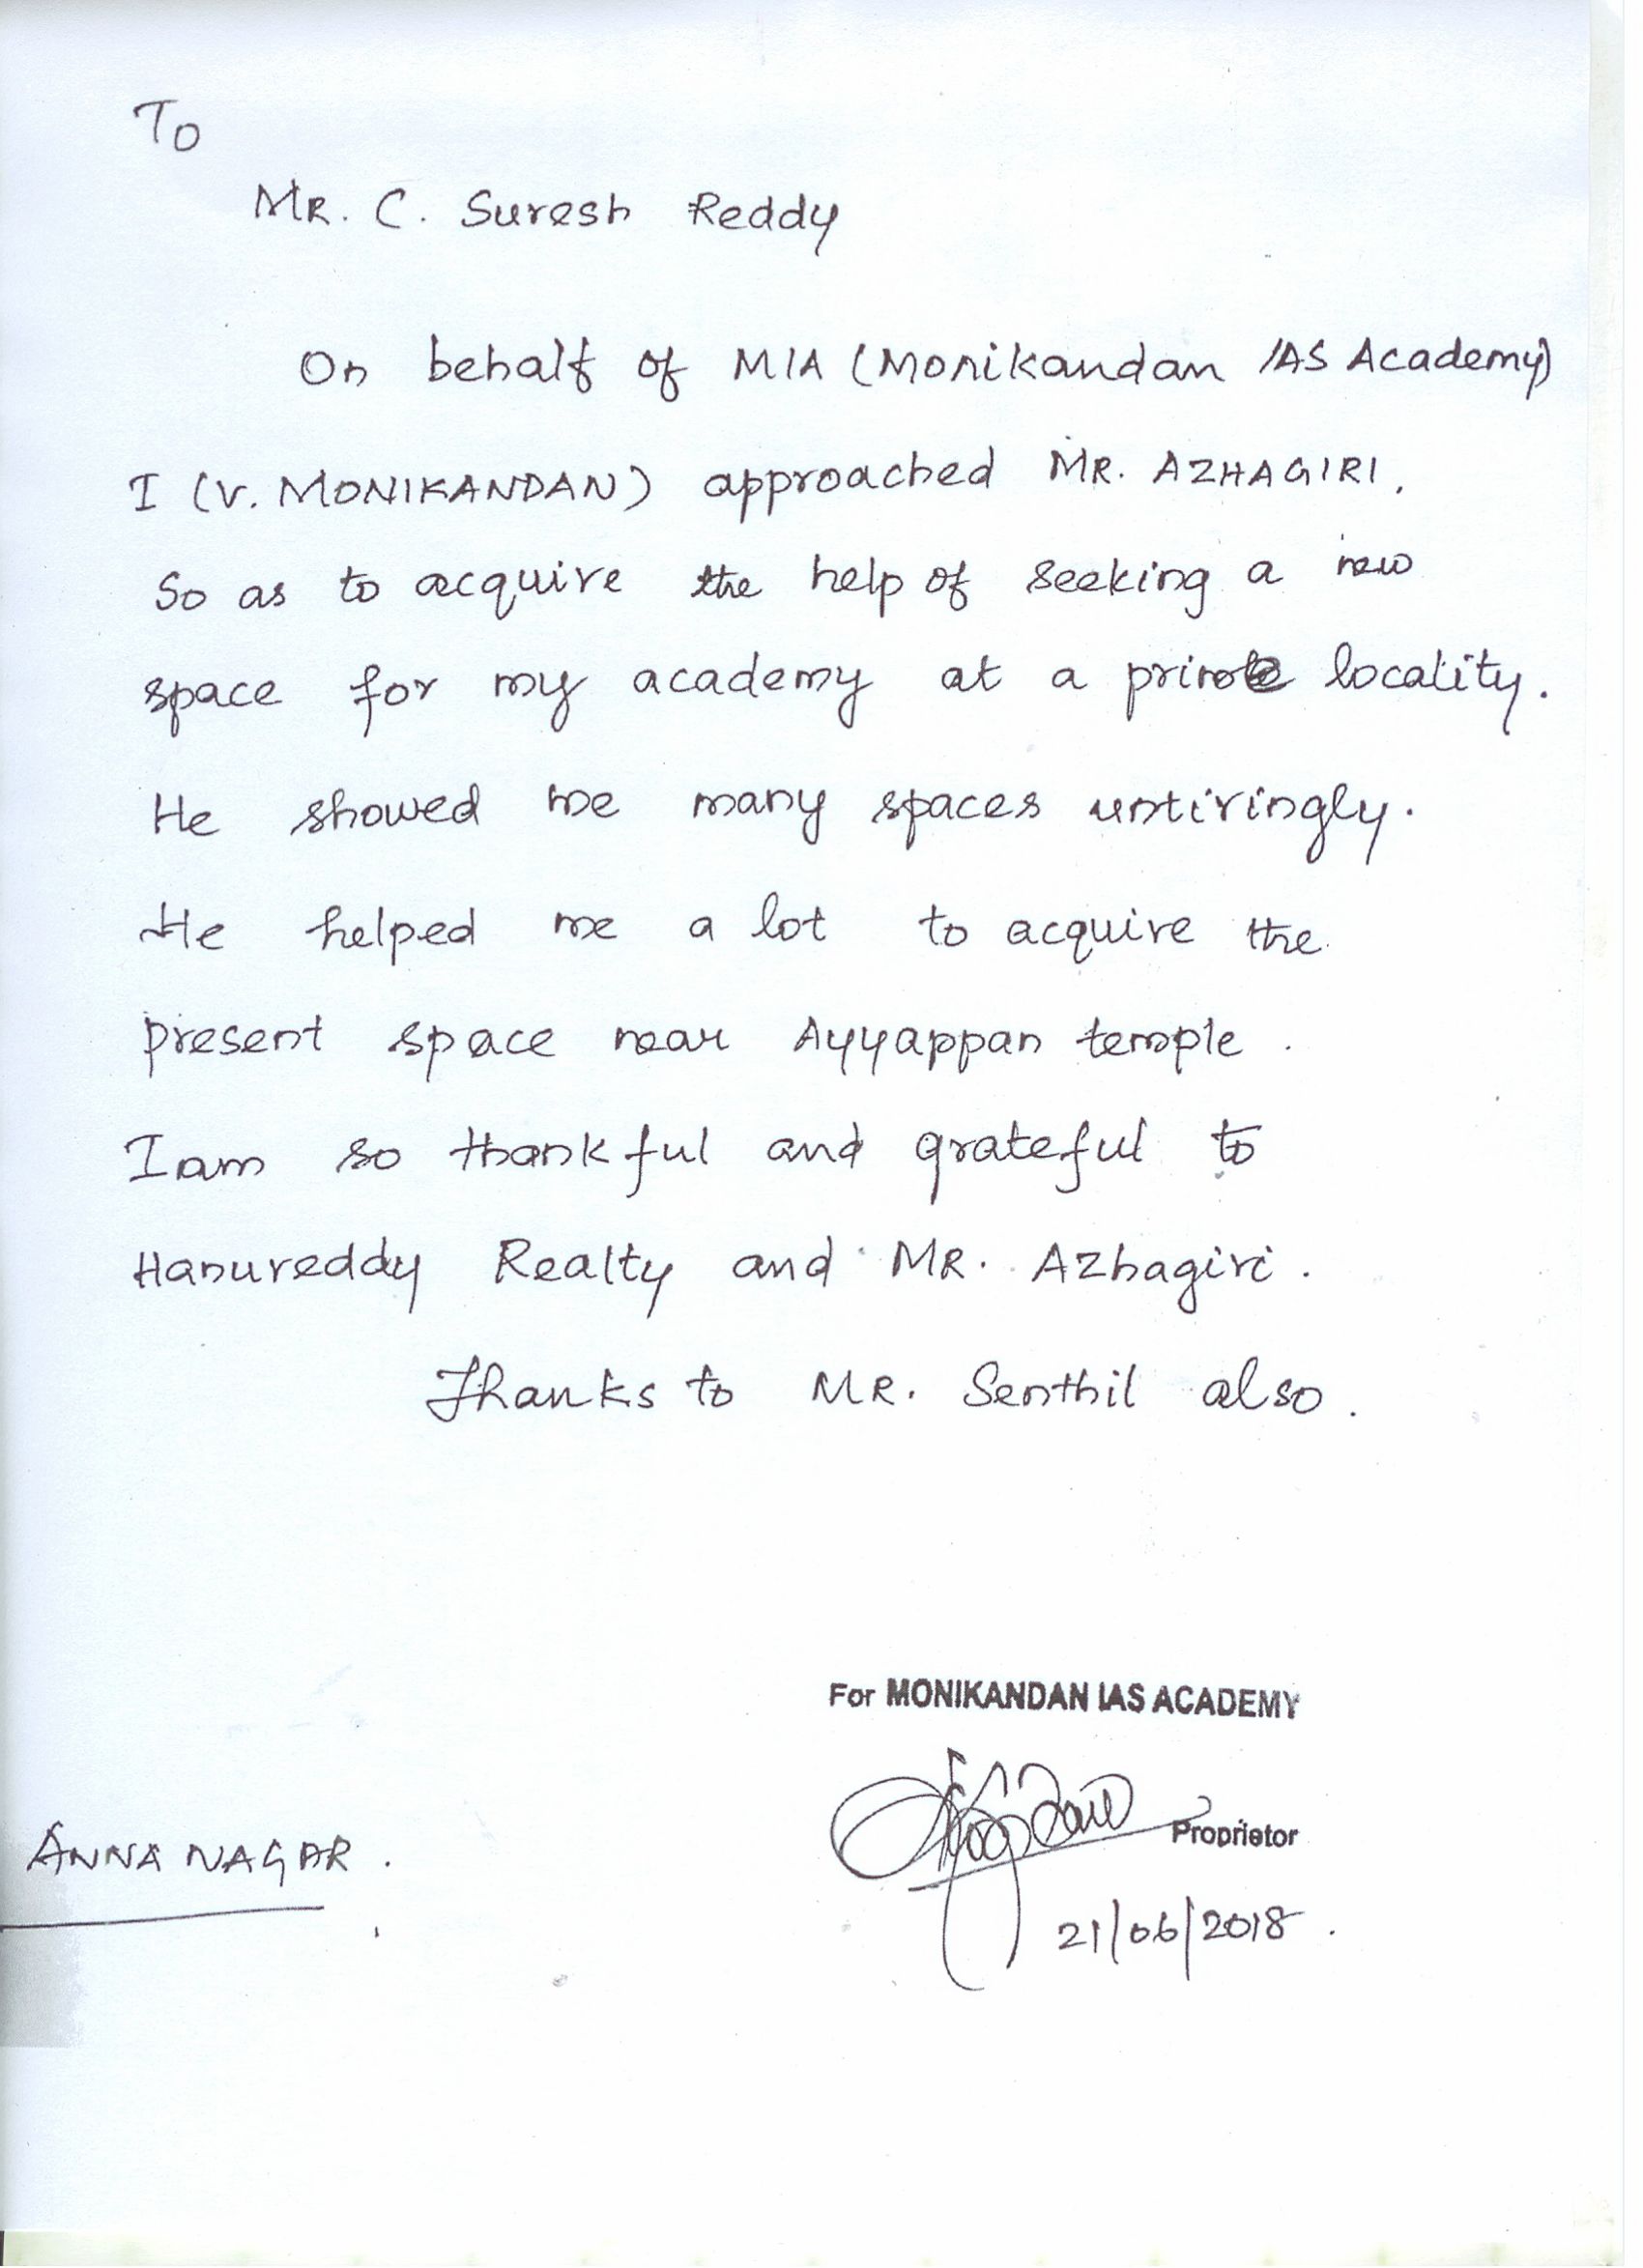 To
Mr. C. Suresh Reddy
On behalf of MIA (Monikandan IAS Academy)
I (V. MONIKANDAN) approached Mr. AZHAGIRI,
So as to acquire the help of seeking a new
space for my academy at a prime locality.
He showed me many spaces untiringly.
He helped me a lot to acquire the
present space near Ayyappan temple.
I am so thankful and grateful to
Hanureddy Realty and Mr. Azhagiri.
Thanks to Mr. Senthil also.
For MONIKANDAN IAS ACADEMY
Proprietor
ANNA NAGAR.
21/06/2018.